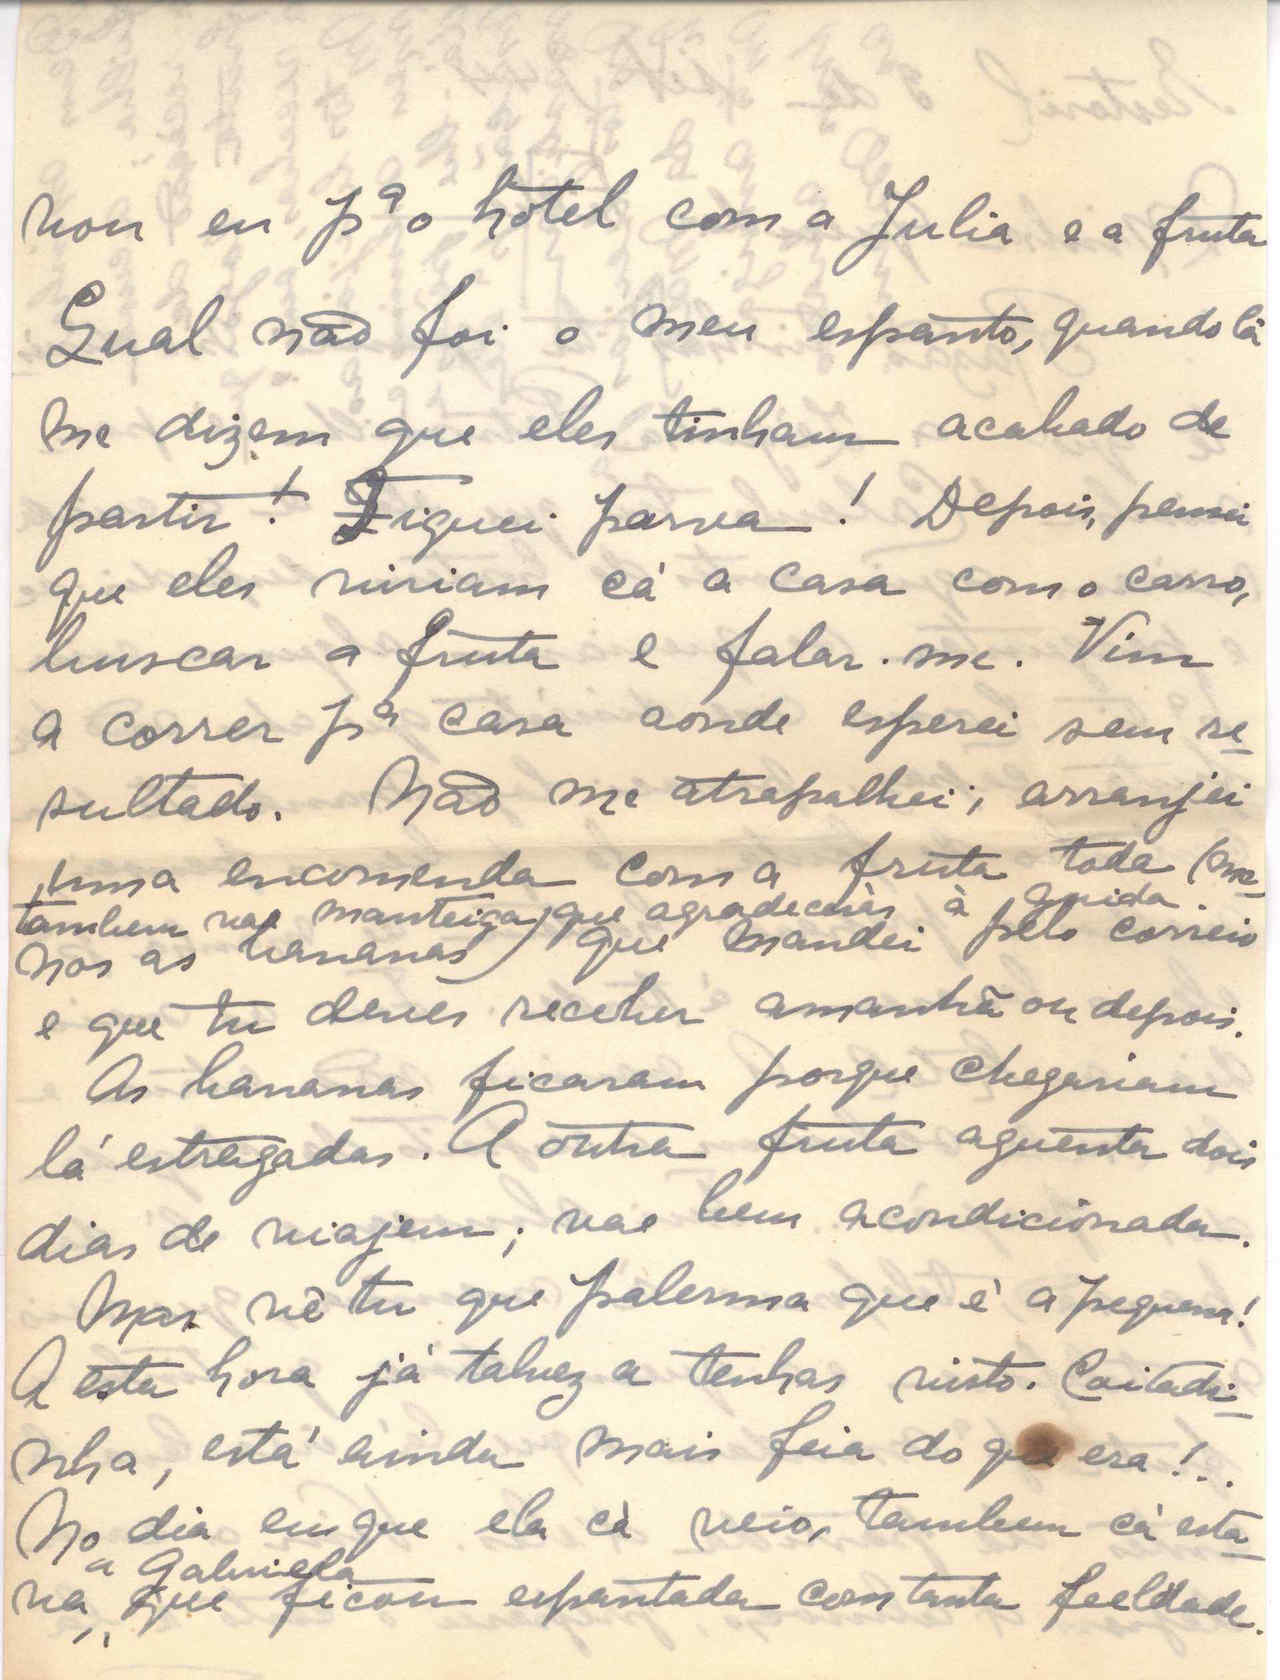 vou eu pª o hotel com a Julia e a fruta
Qual não foi o meu espanto, quando lá
me dizem que eles tinham acabado de
partir! Fiquei parva! Depois, pensei
que eles viriam cá a casa com o carro,
buscar a fruta e falar-me. Vim
a correr pª casa aonde esperei sem re-
sultado. Não me atrapalhei; arranjei
uma encomenda com a fruta toda (me-
tambem vae manteiga, que agradecerás à guida.
nos as bananas) que mandei pelo correio
e que tu deves receber amanhã ou depois.
As bananas ficaram porque chegariam
lá estragadas. A outra fruta aguenta dois
dias de viajem; vae bem acondicionada.
Mas vê tu que palerma que é a pequena!
A esta hora já talvez a tenhas visto. Coitadi-
nha, está ainda mais feia do que era!..
No dia em que ela cá veio, tambem cá esta-
a Gabriela
va, que ficou espantada com tanta fieldade.